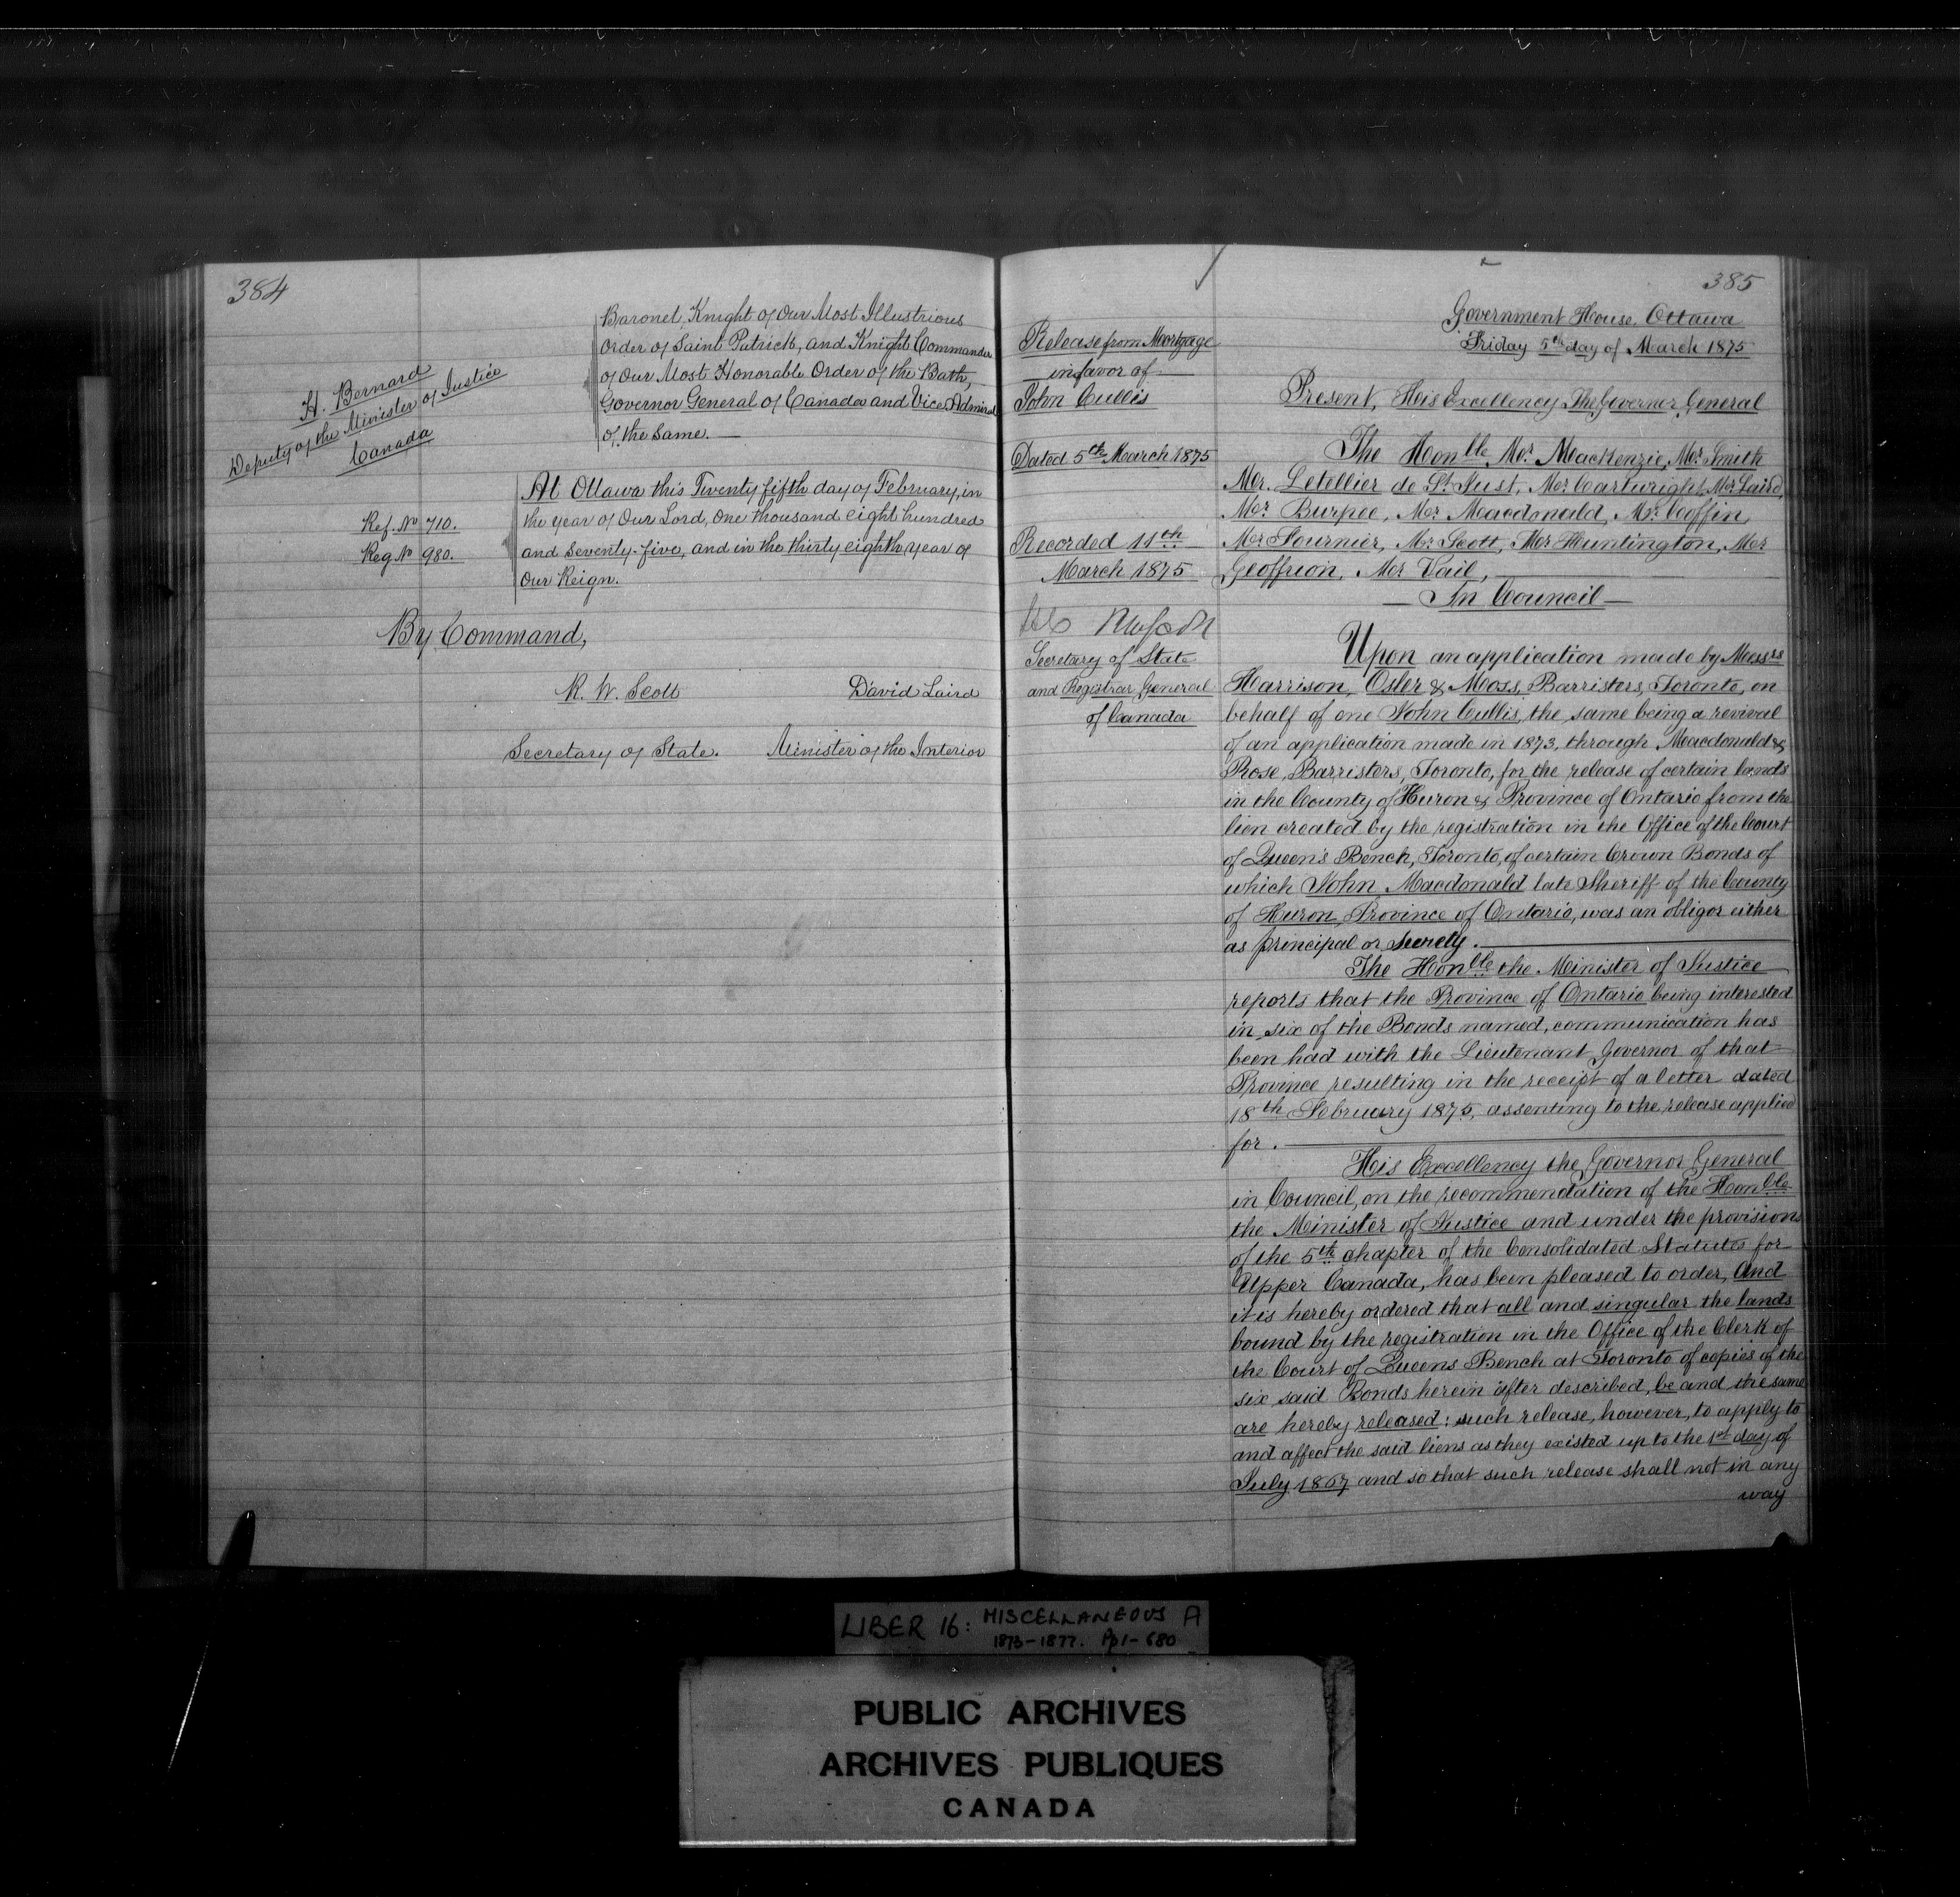 384
Baronet, Knight of Our Most Illustrious
Order of Saint Patrick, and Knight Commander
of Our Most Honorable Order of the Bath,
Governor General of Canada and Vice Admiral
of the same.
H. Bernard
Deputy of the Minister of Justice
Canada
At Ottawa this Twenty fifth day of February, in
the year of Our Lord, one thousand eight hundred
and Seventy-five, and in the thirty eighth year of
Our Reign.
Ref. No 710.
Reg No 980.
By Command,
R. W. Scott David Laird
Secretary of State. Minister of the Interior
385
Release from Mortgage
in favor of
John Cullis
Dated 5th March 1875
Recorded 11th
March 1875
Secretary of State
and Registrar General
of Canada
Government House, Ottawa
Friday 5th day of March 1875
Present, His Excellency The Governor General
The Honble Mr. MacKenzie, Mr. Smith
Mr. Letellier de St. Just, Mr. Cartwright, Mr. Laird,
Mr. Burpee, Mr. Macdonald, Mr. Coffin,
Mr Fournier, Mr. Scott, Mr Huntington, Mr
Geoffrion, Mr Vail,
In Council
Upon an application made by Messrs
Harrison, Osler & Moss, Barristers, Toronto, on
behalf of one John Cullis, the same being a revival
of an application made in 1873, through Macdonald &
Rose, Barristers, Toronto, for the release of certain lands
in the County of Huron & Province of Ontario from the
lien created by the registration in the Office of the Court
of Queen's Bench, Toronto, of certain Crown Bonds of
which John Macdonald late Sheriff of the County
of Huron, Province of Ontario, was an obligor either
as principal or surety.
The Honble the Minister of Justice
reports that the Province of Ontario being interested
in six of the Bonds named, communication has
been had with the Lieutenant Governor of that
Province resulting in the receipt of a letter dated
18th February 1875, assenting to the release applied
for.
His Excellency the Governor General
in Council, on the recommendation of the Honble
the Minister of Justice and under the provisions
of the 5th chapter of the Consolidated Statutes for
Upper Canada, has been pleased to order, And
it is hereby ordered that all and singular the lands
bound by the registration in the Office of the Clerk of
the Court of Queens Bench at Toronto of copies of the
six said Bonds herein after described, be and the same
are hereby released: such release, however, to apply to
and affect the said liens as they existed up to the 1st day of
July 1867 and so that such release shall not in any
way
LIBER 16: MISCELLANEOUS A
1873-1877. Pp 1-680
PUBLIC ARCHIVES
ARCHIVES PUBLIQUES
CANADA